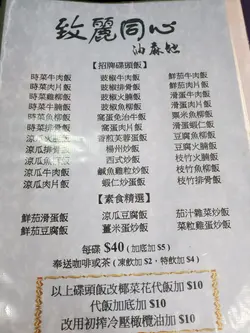 致麗同心
油麻地
【招牌碟頭飯】
時菜牛肉飯 豉椒牛肉飯 鮮茄牛肉飯
時菜肉片飯 豉椒排骨飯 鮮茄肉片飯
時菜雞柳飯 豉椒火腩飯 滑蛋牛肉飯
時菜魚柳飯 豉椒魚柳飯 粟米魚柳飯
時菜排骨飯 窩蛋免治牛飯 滑蛋蝦仁飯
窩蛋肉片飯 豆腐魚柳飯
涼瓜牛肉飯 香煎芙蓉蛋飯 豆腐火腩飯
涼瓜肉片飯 楊州炒飯 枝竹火腩飯
涼瓜排骨飯 西式炒飯 枝竹魚柳飯
鹹魚雞粒炒飯 枝竹排骨飯
涼瓜魚柳飯 蝦仁炒蛋飯
【素食精選】
鮮茄滑蛋飯 涼瓜豆腐飯 茄汁雜菜炒飯
鮮茄豆腐飯 薑米蛋炒飯 菜粒雞蛋炒飯
每碟 $40 (加底加 $5)
奉送咖啡或茶 (凍飲加 $2,特飲加 $4)
以上碟頭飯改椰菜花代飯加 $10
代飯加底加 $10
改用初搾冷壓橄欖油加 $10